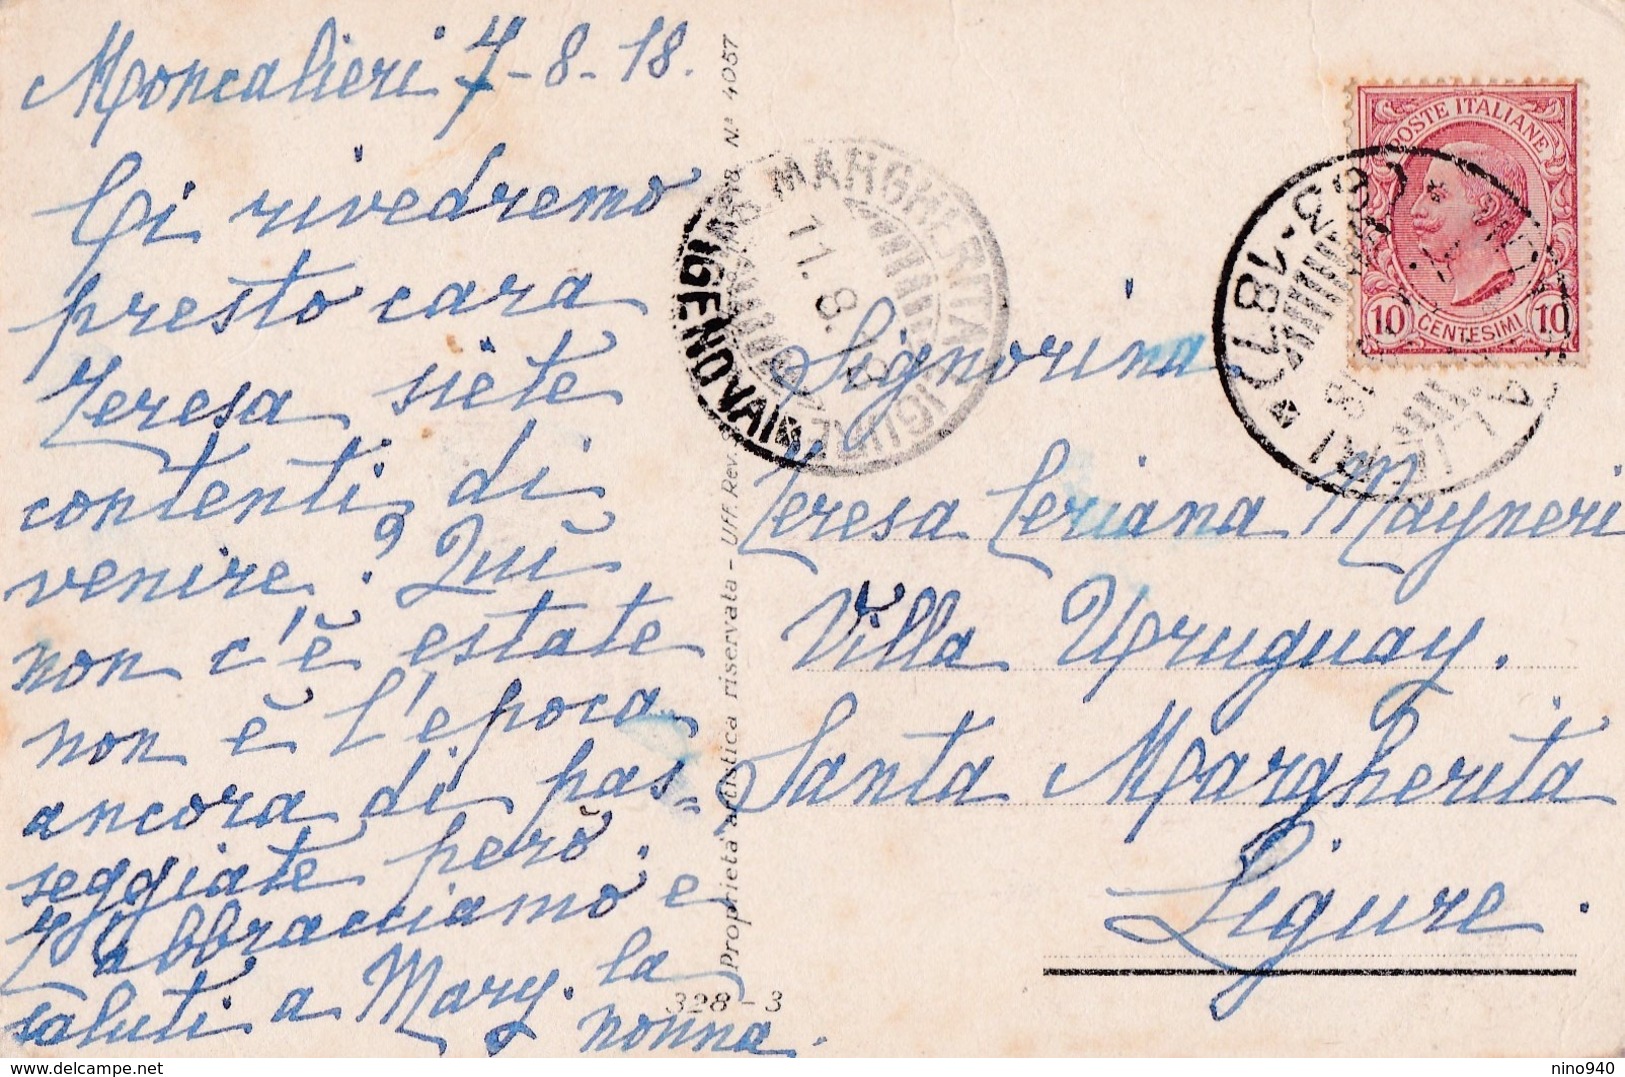 Moncalieri 7-8-18.
Ci rivedremo
presto cara
Teresa siete
contenti di
venire? Qui
non c'è estate
non è l'epoca
ancora di pas-
seggiate però.
T'abbracciamo e
saluti a Mary. la
nonna.
Signorina
Teresa Ceriana Mayneri
Villa Uruguay.
Santa Margherita
Ligure.
POSTE ITALIANE
10 CENTESIMI 10
S. MARGHERITA LIGURE
11.8.18
(GENOVA)
Proprietà artistica riservata - Uff. Rev. N.° 4057
328-3
nino940